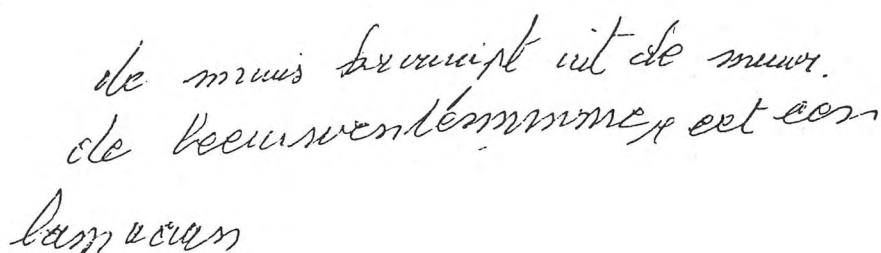 de muis kruipt uit de muur.
de leeuwentemmer eet een
lam aan